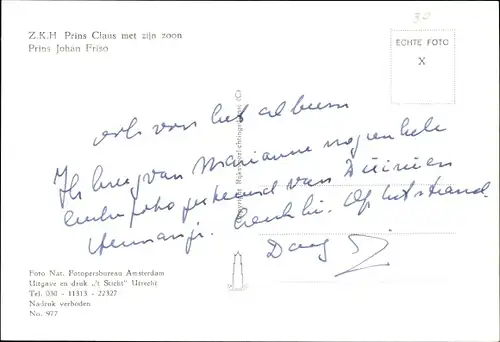 Z.K.H Prins Claus met zijn zoon
Prins Johan Friso
30
ECHTE FOTO
X
van het album
Ik kreeg van Marianne nog enkele
foto gestuurd van
Leuk hè. Op het strand.
Daag
Foto Nat. Fotopersbureau Amsterdam
Uitgave en druk „'t Sticht” Utrecht
Tel. 030 - 11313 - 22327
Nadruk verboden
No. 977